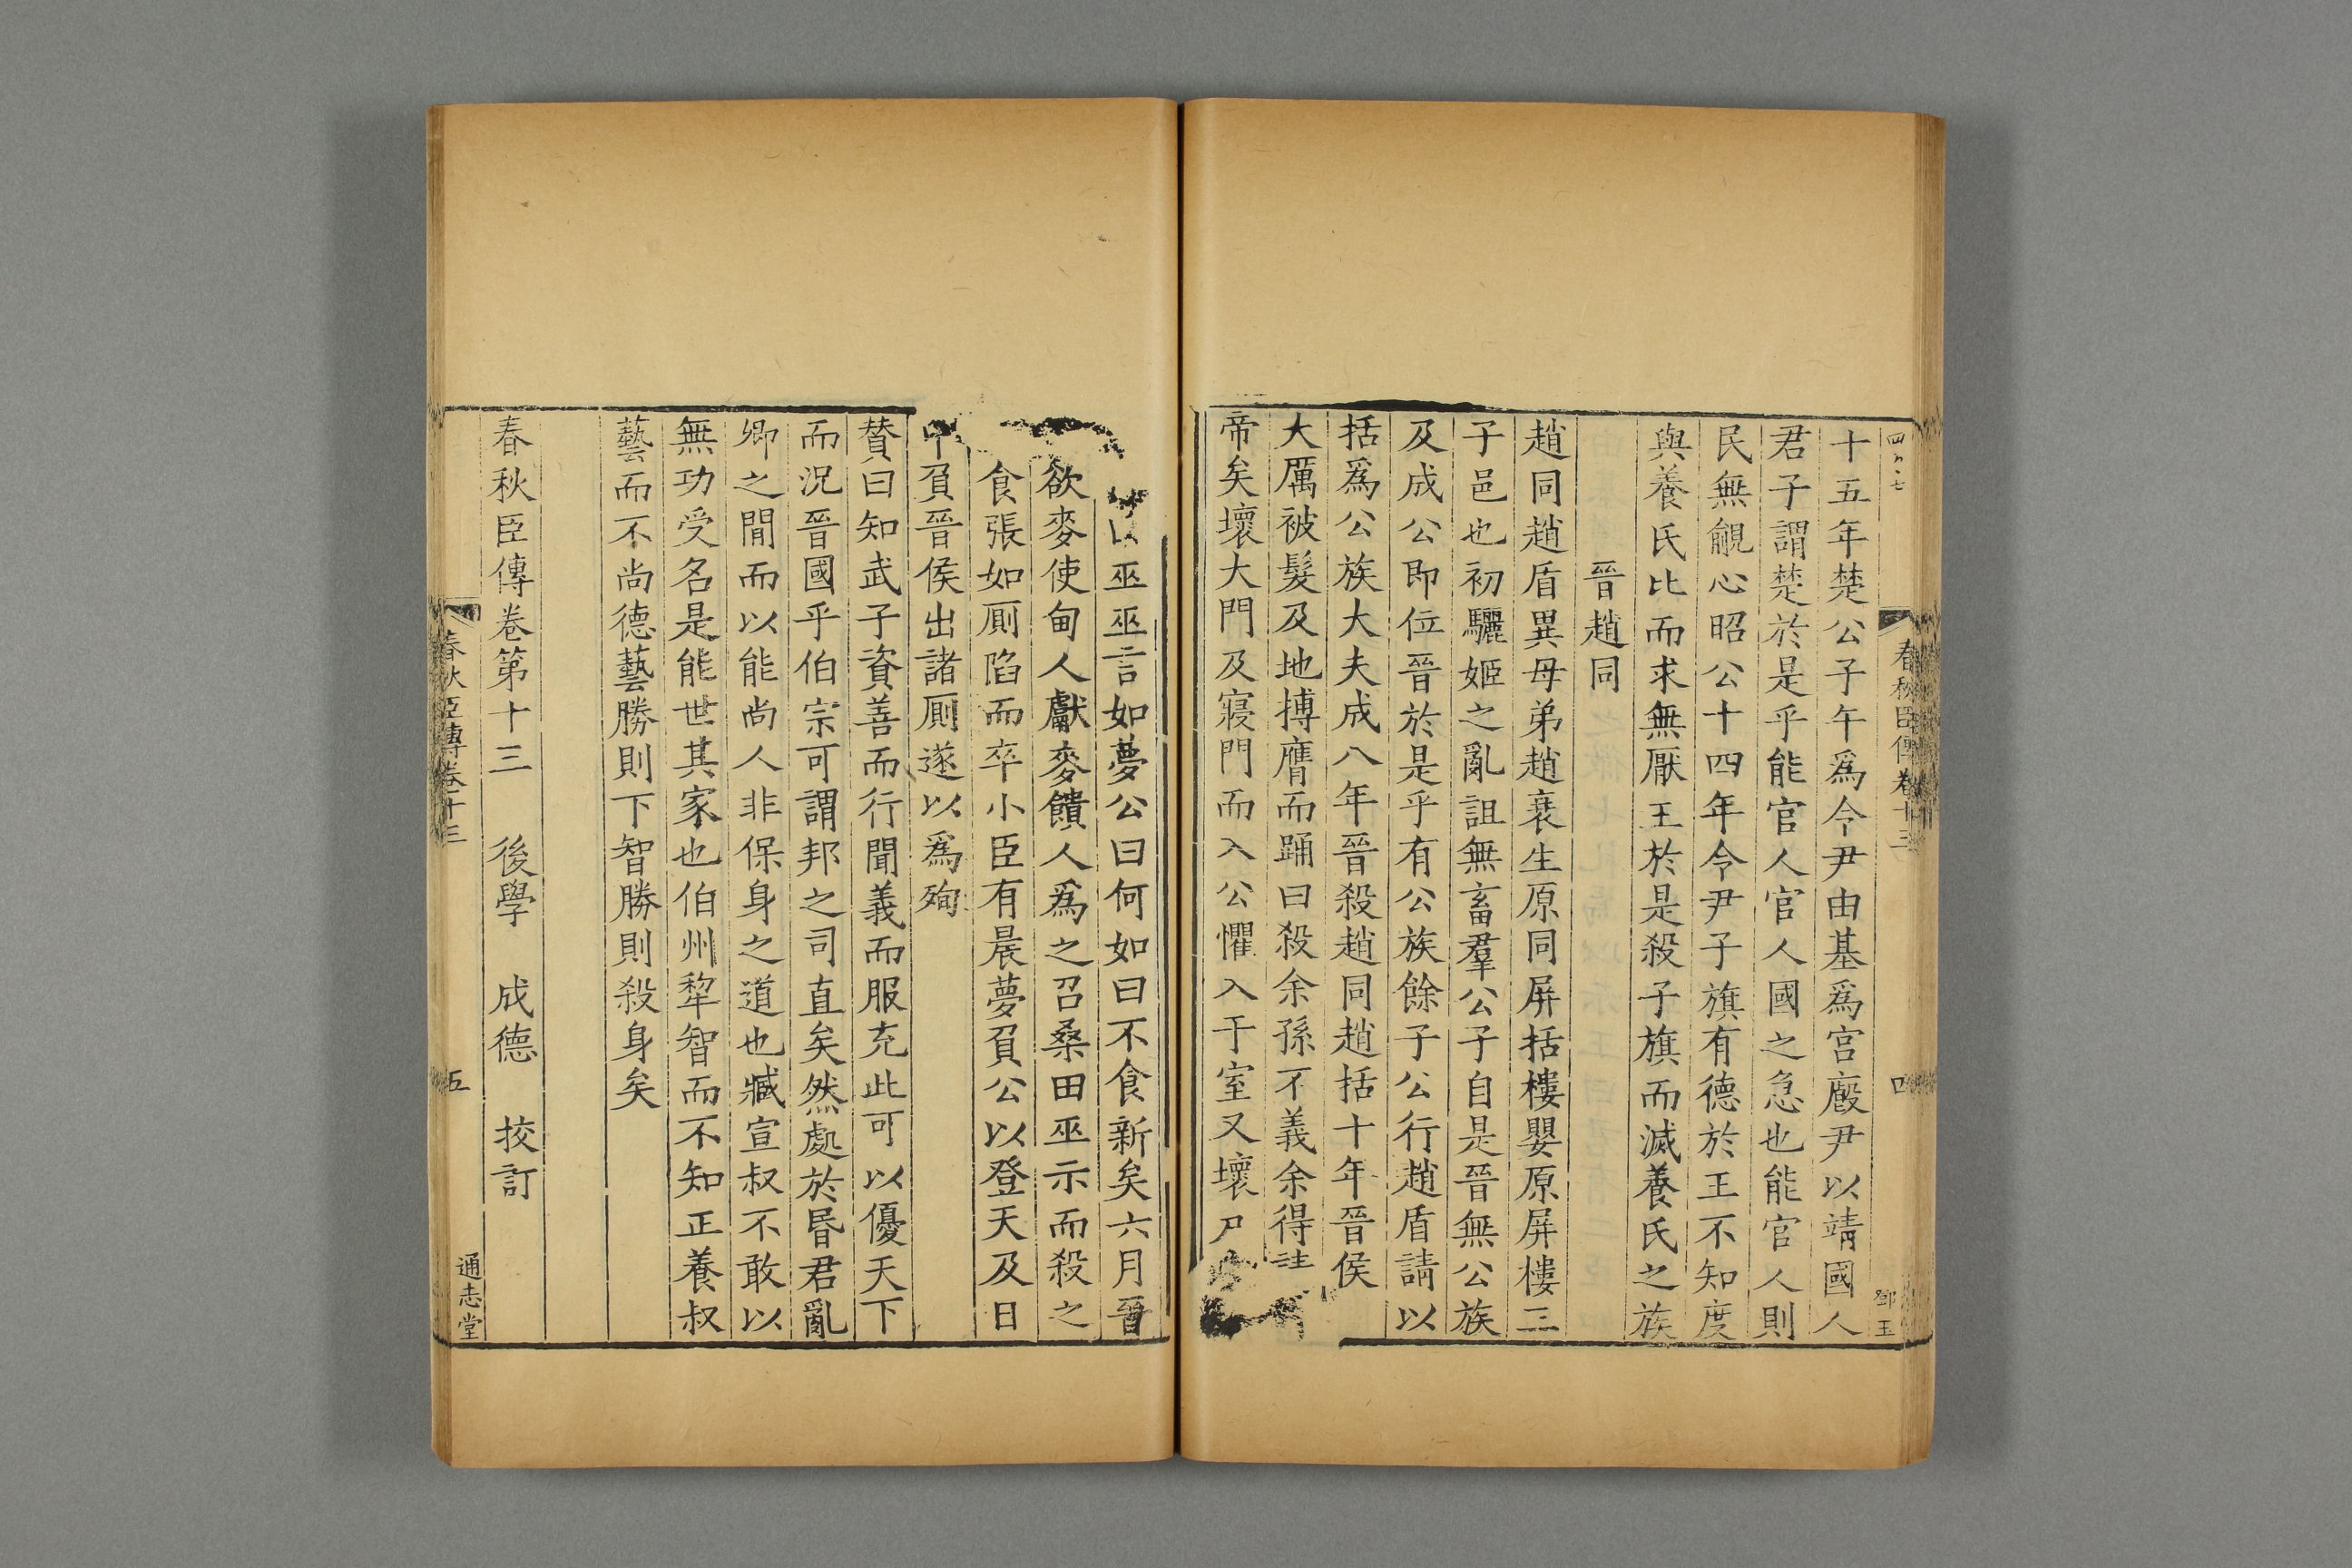 四八七
春秋臣傳卷十三
四
鄧玉
十五年楚公子午爲令尹由基爲宮廄尹以靖國人
君子謂楚於是乎能官人官人國之急也能官人則
民無覦心昭公十四年令尹子旗有德於王不知度
與養氏比而求無厭王於是殺子旗而滅養氏之族
晉趙同
趙同趙盾異母弟趙衰生原同屏括樓嬰原屏樓三
子邑也初驪姬之亂詛無畜羣公子自是晉無公族
及成公即位晉於是乎有公族餘子公行趙盾請以
括爲公族大夫成八年晉殺趙同趙括十年晉侯
大厲被髮及地搏膺而踊曰殺余孫不義余得
帝矣壞大門及寢門而入公懼入于室又壞戶
巫巫言如夢公曰何如曰不食新矣六月晉
欲麥使甸人獻麥饋人爲之召桑田巫示而殺之
食張如厠陷而卒小臣有晨夢負公以登天及日
中負晉侯出諸厠遂以爲殉
贊曰知武子資善而行聞義而服充此可以優天下
而況晉國乎伯宗可謂邦之司直矣然處於昬君亂
卿之間而以能尚人非保身之道也臧宣叔不敢以
無功受名是能世其家也伯州犂智而不知正養叔
藝而不尚德藝勝則下智勝則殺身矣
春秋臣傳卷第十三 後學 成德 挍訂
春秋臣傳卷十三
五
通志堂